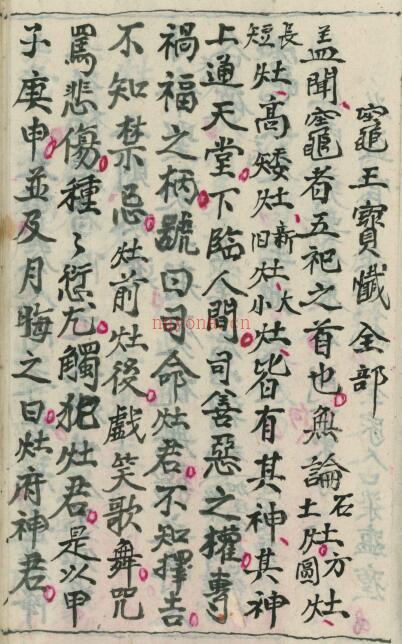 竈王寶懺全部
盖聞竈者五祀之首也無論石土灶方圓灶
長短灶高矮灶新旧灶大小灶皆有其神其神
上通天堂下臨人間司善惡之權專
禍福之柄號曰司命灶君不知擇吉
不知禁忌灶前灶後戲笑歌舞咒
罵悲傷種々愆尤觸犯灶君是以甲
子庚申並及月晦之日灶府神君
nayona.cn